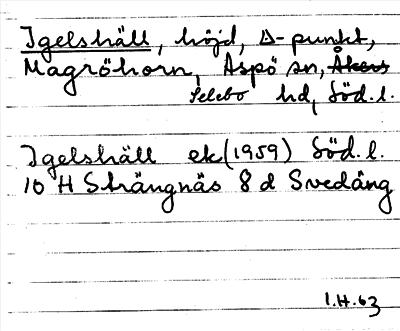 Igelshäll, höjd, Δ-punkt,
Magröhorn, Aspö sn, Åkers
Selebo hd, Söd. l.
Igelshäll ek (1959) Söd. l.
10 H Strängnäs 8 d Svedäng
1.H.63